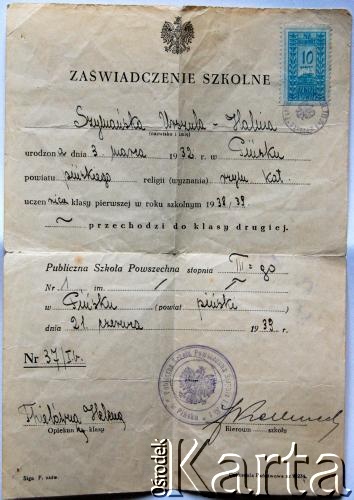 10
ZAŚWIADCZENIE SZKOLNE
Szymańska Urszula - Halina
(nazwisko i imię)
urodzona 3 marca 1932 r. w Pińsku
powiatu pińskiego religii (wyznania) rzym kat
uczennica klasy pierwszej w roku szkolnym 1938/39
~ przechodzi do klasy drugiej.
Publiczna Szkoła Powszechna stopnia III=go
Nr 1 im.
w Pińsku (powiat piński)
dnia 21 czerwca 1939 r.
Nr 37/Ib.
Helena
Opiekun klasy
Kierown. szkoły
Ośrodek
Karta